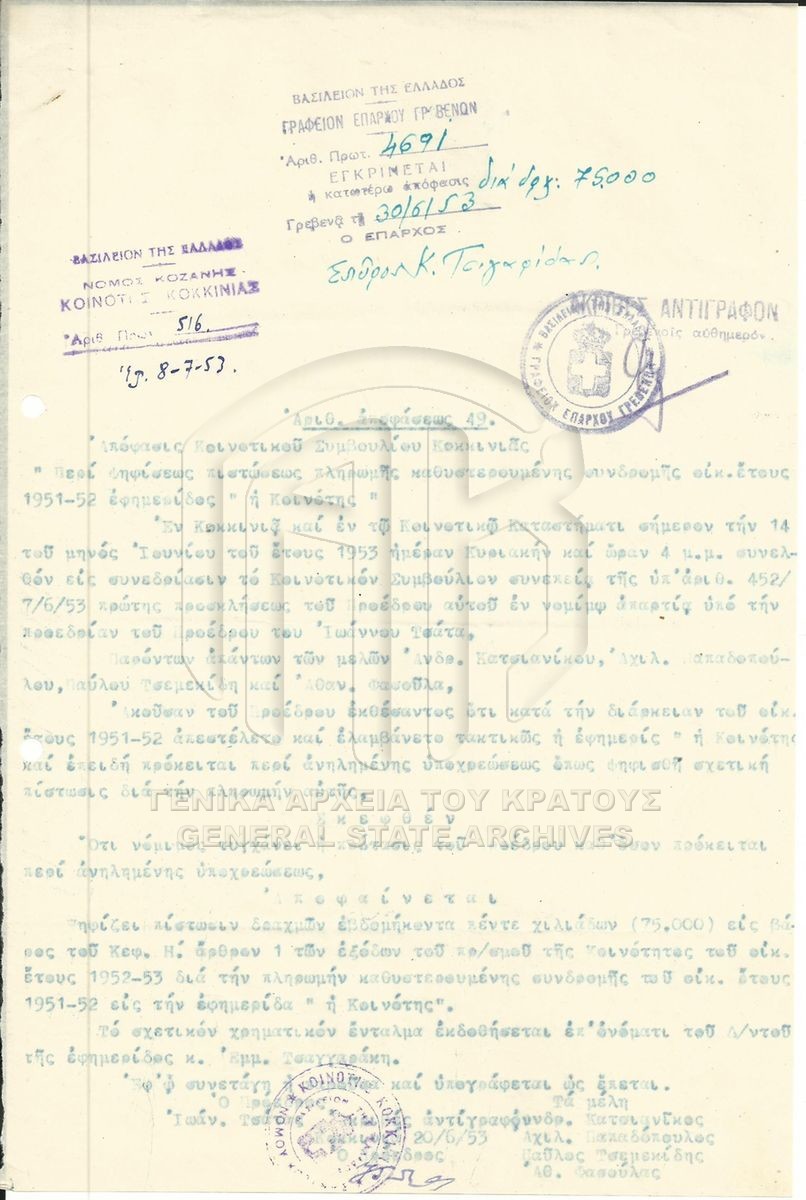 ΒΑΣΙΛΕΙΟΝ ΤΗΣ ΕΛΛΑΔΟΣ
ΓΡΑΦΕΙΟΝ ΕΠΑΡΧΟΥ ΓΡΕΒΕΝΩΝ
Ἀριθ. Πρωτ. 4691
ΕΓΚΡΙΝΕΤΑΙ
ἡ κατωτέρω ἀπόφασις διά δρχ: 75.000
Γρεβενᾷ τῇ 30/6/53
Ο ΕΠΑΡΧΟΣ
Σπῦρος Κ. Τσιγαρίδας.
ΒΑΣΙΛΕΙΟΝ ΤΗΣ ΕΛΛΑΔΟΣ
ΝΟΜΟΣ ΚΟΖΑΝΗΣ
ΚΟΙΝΟΤΗΣ ΚΟΚΚΙΝΙΑΣ
Ἀριθ. Πρωτ. 516
8-7-53.
ΑΚΡΙΒΕΣ ΑΝΤΙΓΡΑΦΟΝ
Γρεβενοῖς αὐθημερόν
ΒΑΣΙΛΕΙΟΝ ΤΗΣ ΕΛΛΑΔΟΣ
ΓΡΑΦΕΙΟΝ ΕΠΑΡΧΟΥ ΓΡΕΒΕΝΩΝ
Ἀριθ. ἀποφάσεως 49.
Ἀπόφασις Κοινοτικοῦ Συμβουλίου Κοκκινιᾶς
" Περί ψηφίσεως πιστώσεως πληρωμῆς καθυστερουμένης συνδρομῆς οἰκ. ἔτους
1951-52 ἐφημερίδος " ἡ Κοινότης "
Ἐν Κοκκινιᾷ καί ἐν τῷ Κοινοτικῷ Καταστήματι σήμερον τήν 14
τοῦ μηνός Ἰουνίου τοῦ ἔτους 1953 ἡμέραν Κυριακήν καί ὥραν 4 μ.μ. συνελ-
θόν εἰς συνεδρίασιν τό Κοινοτικόν Συμβούλιον συνεπείᾳ τῆς ὑπ'ἀριθ. 452/
7/6/53 πρώτης προσκλήσεως τοῦ Προέδρου αὐτοῦ ἐν νομίμῳ ἀπαρτίᾳ ὑπό τήν
προεδρίαν τοῦ Προέδρου του Ἰωάννου Τσάτα,
Παρόντων ἁπάντων τῶν μελῶν Ἀνδρ. Κατσιανίκου, Ἀχιλ. Παπαδοπού-
λου, Παύλου Τσεμεκίδη καί Ἀθαν. Φασούλα,
Ἀκοῦσαν τοῦ Προέδρου ἐκθέσαντος ὅτι κατά τήν διάρκειαν τοῦ οἰκ.
ἔτους 1951-52 ἀπεστέλετο καί ἐλαμβάνετο τακτικῶς ἡ ἐφημερίς " ἡ Κοινότης
καί ἐπειδή πρόκειται περί ἀνηλημένης ὑποχρεώσεως ὅπως ψηφισθῇ σχετική
πίστωσις διά τήν πληρωμήν αὐτῆς,
ΓΕΝΙΚΑ ΑΡΧΕΙΑ ΤΟΥ ΚΡΑΤΟΥΣ
GENERAL STATE ARCHIVES
Σ κ ε φ θ έ ν
Ὅτι νόμιμος τυγχάνει ἡ πρότασις τοῦ Προέδρου καθ'ὅσον πρόκειται
περί ἀνηλημένης ὑποχρεώσεως,
Ἀ π ο φ α ί ν ε τ α ι
Ψηφίζει πίστωσιν δραχμῶν ἑβδομήκοντα πέντε χιλιάδων (75.000) εἰς βά-
ρος τοῦ Κεφ. Η. ἄρθρον 1 τῶν ἐξόδων τοῦ πρ/σμοῦ τῆς Κοινότητος τοῦ οἰκ.
ἔτους 1952-53 διά τήν πληρωμήν καθυστερουμένης συνδρομῆς τοῦ οἰκ. ἔτους
1951-52 εἰς τήν ἐφημερίδα " ἡ Κοινότης".
Τό σχετικόν χρηματικόν ἔνταλμα ἐκδοθήσεται ἐπ'ὀνόματι τοῦ Δ/ντοῦ
τῆς ἐφημερίδος κ. Ἐμμ. Τσαγγαράκη.
Ἐφ'ᾧ συνετάγη ἡ παροῦσα καί ὑπογράφεται ὡς ἕπεται.
Ὁ Πρόεδρος Τά μέλη
Ἰωάν. Τσάτας ἀντίγραφον Ἀνδρ. Κατσιανῖκος
Κοκκινιᾷ 20/6/53 Ἀχιλ. Παπαδόπουλος
Ὁ Πρόεδρος Παῦλος Τσεμεκίδης
Ἀθ. Φασούλας